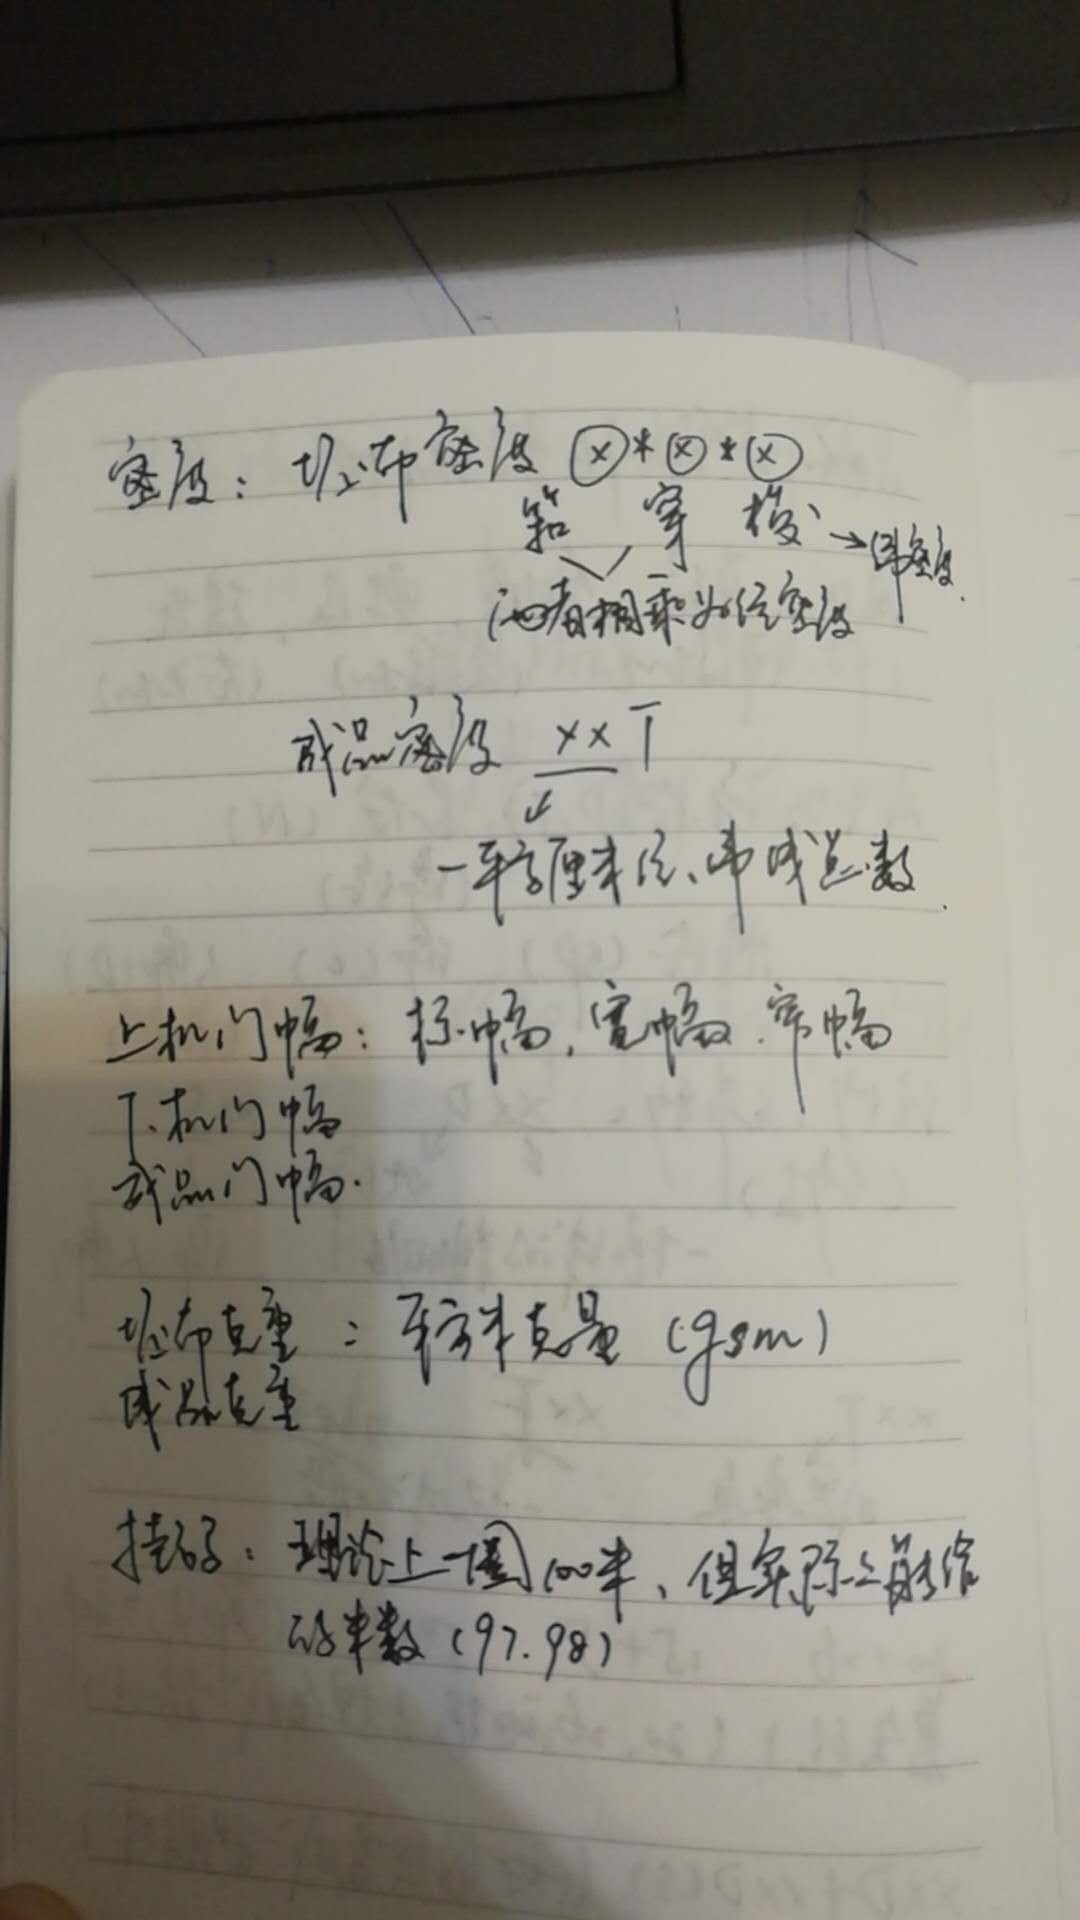 密度：坯布密度 ⓧ*ⓧ*ⓧ
筘 穿 梭→纬密度
两者相乘为经密度
成品密度 xxT
↓
一平方厘米经、纬线总数
上机门幅：标幅，宽幅，窄幅
下机门幅
成品门幅.
坯布克重：平方米克重（gsm）
成品克重
挂码：理论上一圈100米，但实际上前缩
的米数（97.98）